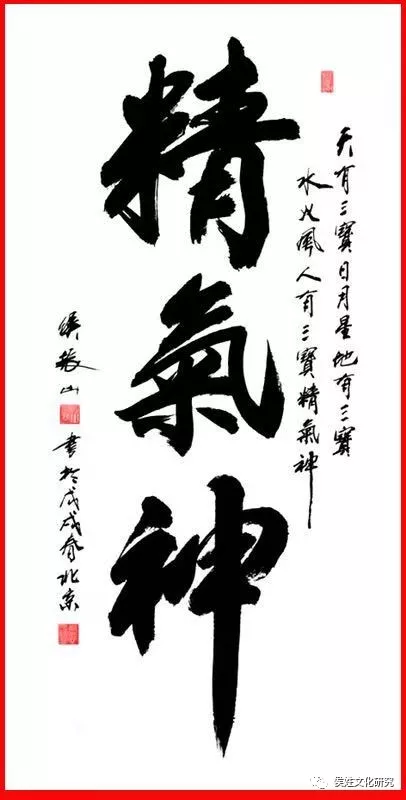 天有三寶日月星地有三寶
水火風人有三寶精氣神
精氣神
侯振山
書於戊戌春北京
侯姓文化研究